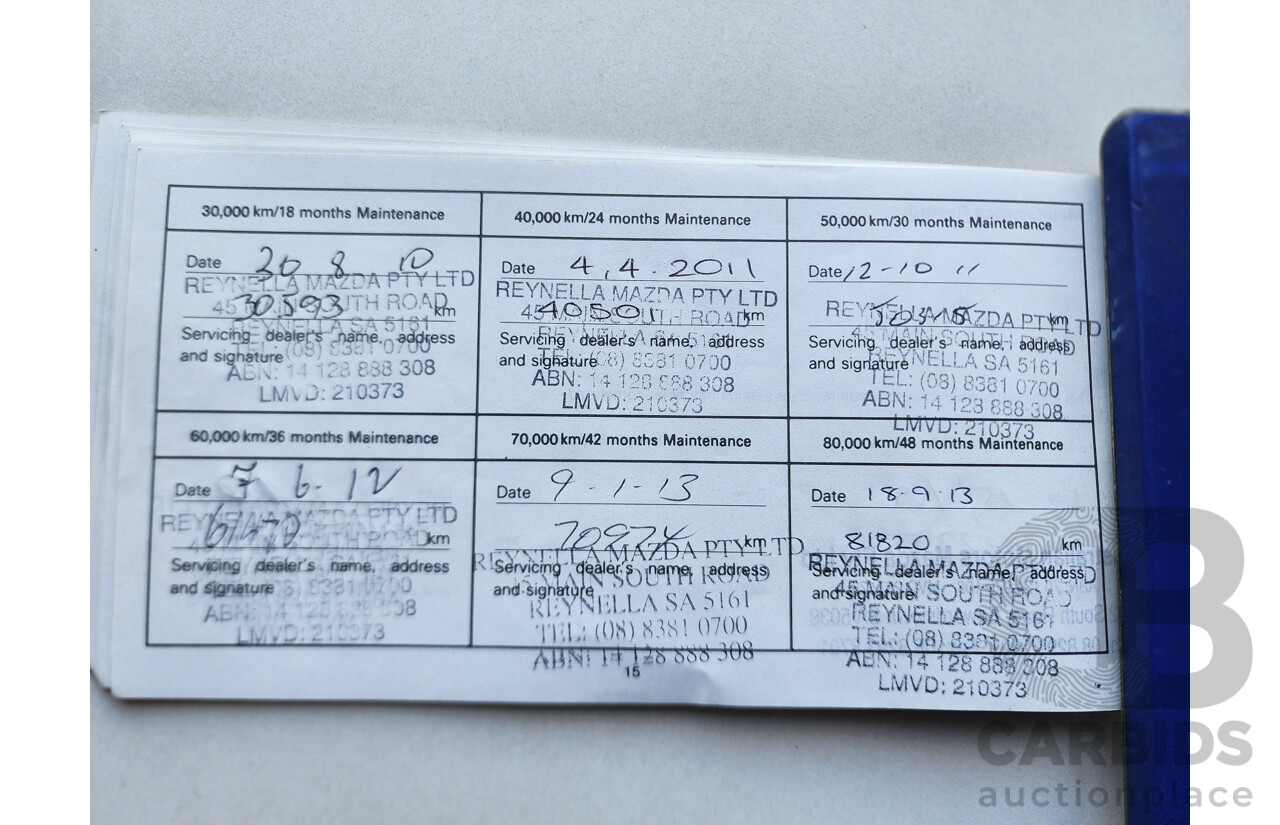 30,000 km/18 months Maintenance
Date 30 8 10
REYNELLA MAZDA PTY LTD
30593 km
Servicing dealer's name, address
and signature
REYNELLA SA 5161
TEL: (08) 8381 0700
ABN: 14 128 888 308
LMVD: 210373
40,000 km/24 months Maintenance
Date 4,4.2011
REYNELLA MAZDA PTY LTD
45 MAIN SOUTH ROAD
40501 km
Servicing dealer's name, address
and signature
REYNELLA SA 5161
TEL: (08) 8381 0700
ABN: 14 128 888 308
LMVD: 210373
50,000 km/30 months Maintenance
Date 12-10 11
REYNELLA MAZDA PTY LTD
km
45 MAIN SOUTH ROAD
Servicing dealer's name, address
and signature
REYNELLA SA 5161
TEL: (08) 8381 0700
ABN: 14 128 888 308
LMVD: 210373
60,000 km/36 months Maintenance
Date 7 6-12
REYNELLA MAZDA PTY LTD
km
Servicing dealer's name, address
and signature
8381 0700
ABN: 14 128 888 308
LMVD: 210373
70,000 km/42 months Maintenance
Date 9-1-13
70974 km
REYNELLA MAZDA PTY LTD
Servicing dealer's name, address
45 MAIN SOUTH ROAD
and signature
REYNELLA SA 5161
TEL: (08) 8381 0700
ABN: 14 128 888 308
80,000 km/48 months Maintenance
Date 18.9.13
81820 km
REYNELLA MAZDA PTY LTD
Servicing dealer's name, address
45 MAIN SOUTH ROA
and signature
REYNELLA SA 5161
TEL: (08) 8381 0700
ABN: 14 128 888 308
LMVD: 210373
15
CARBIDS
auctionplace